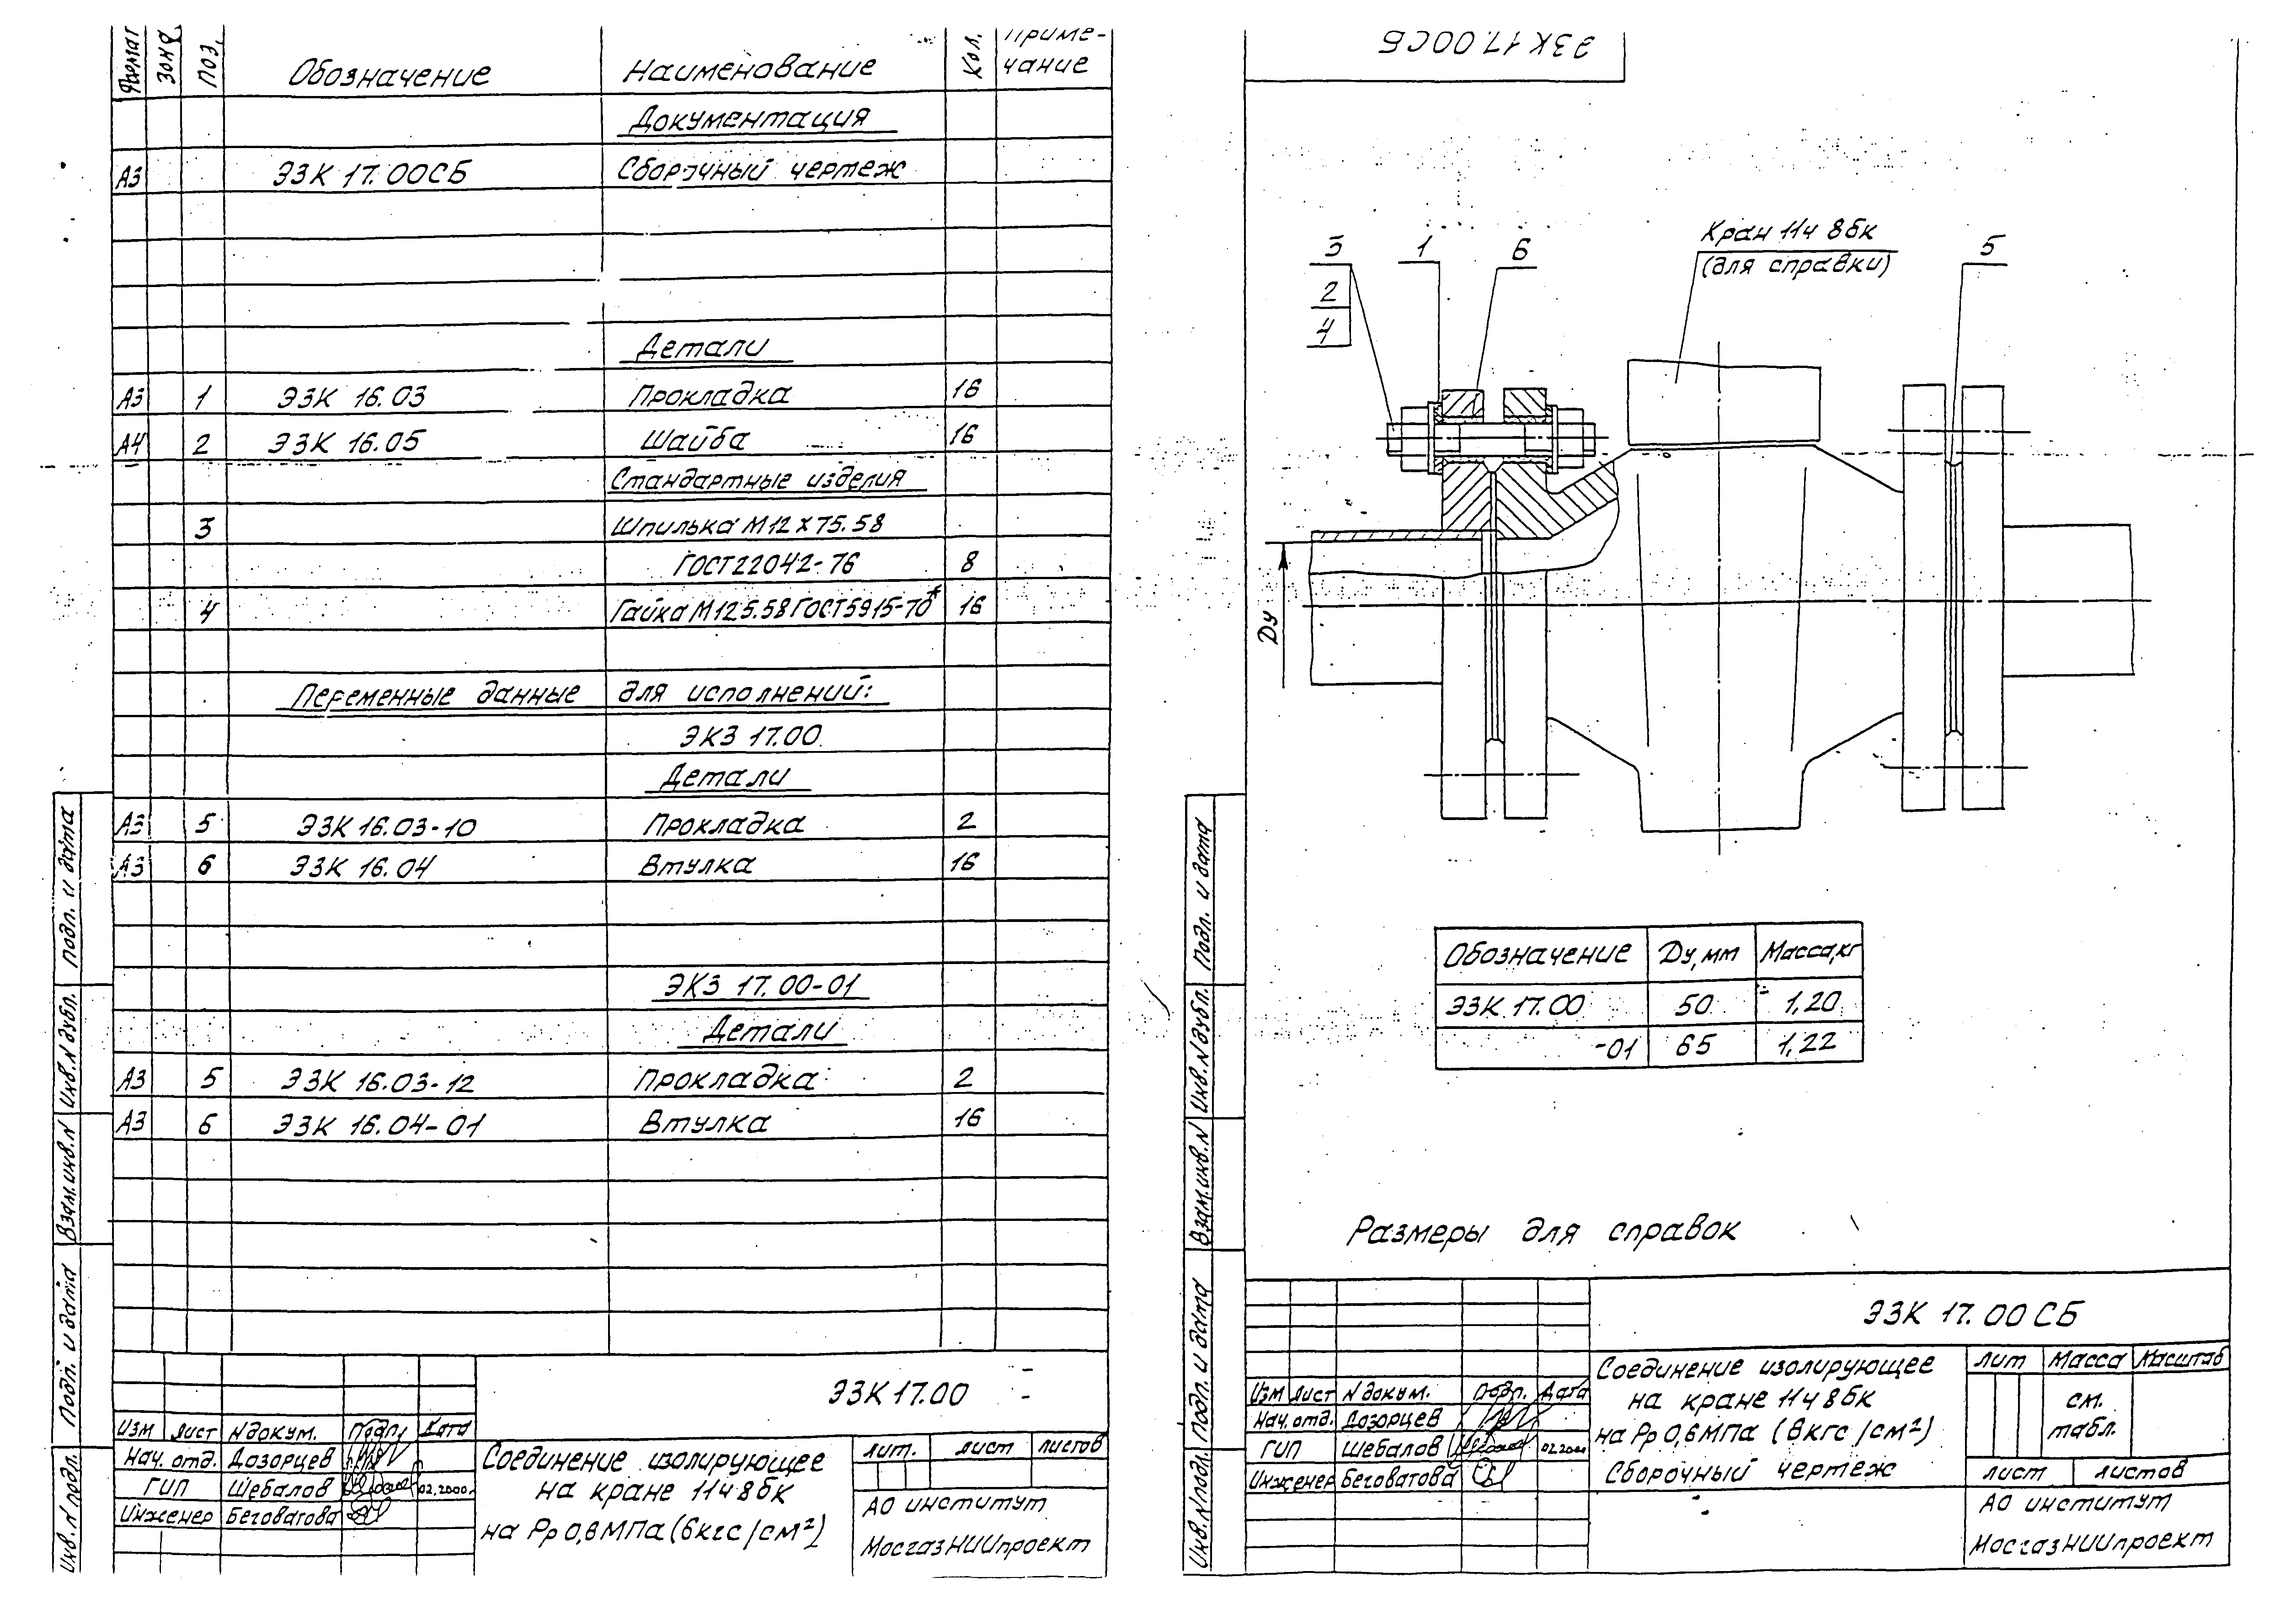 Формат Зона Поз. Обозначение Наименование Кол. Приме-
чание
Документация
А3 ЭЗК 17.00СБ Сборочный чертеж
Детали
А3 1 ЭЗК 16.03 Прокладка 16
А4 2 ЭЗК 16.05 Шайба 16
Стандартные изделия
3 Шпилька М12х75.58
ГОСТ22042-76 8
4 Гайка М12.5.58 ГОСТ5915-70* 16
Переменные данные для исполнений:
ЭКЗ 17.00
Детали
А3 5 ЭЗК 16.03-10 Прокладка 2
А3 6 ЭЗК 16.04 Втулка 16
ЭКЗ 17.00-01
Детали
А3 5 ЭЗК 16.03-12 Прокладка 2
А3 6 ЭЗК 16.04-01 Втулка 16
Подп. и дата
Инв.N дубл.
Взам.инв.N
Подп. и дата
Инв.N подл.
ЭЗК 17.00
Изм Лист N докум. Подп. Дата
Нач. отд. Дозорцев
ГИП Шебалов 02.2000
Инженер Беговатова
Соединение изолирующее
на кране 11ч 8бк
на Рр 0,6МПа (6кгс/см²)
Лит. Лист Листов
АО институт
МосгазНИИпроект
ЭЗК 17.00СБ
3
2
4
1
6
Кран 11ч 8бк
(для справки)
5
Ду
Обозначение Ду, мм Масса,кг
ЭЗК 17.00 50 1,20
-01 65 1,22
Размеры для справок
Подп. и дата
Инв.N дубл.
Взам.инв.N
Подп. и дата
Инв.N подл.
ЭЗК 17.00 СБ
Изм Лист N докум. Подп. Дата
Нач. отд. Дозорцев
ГИП Шебалов 02.2000
Инженер Беговатова
Соединение изолирующее
на кране 11ч 8бк
на Рр 0,6МПа (6кгс/см²)
Сборочный чертеж
Лит Масса Масштаб
см.
табл.
Лист Листов
АО институт
МосгазНИИпроект